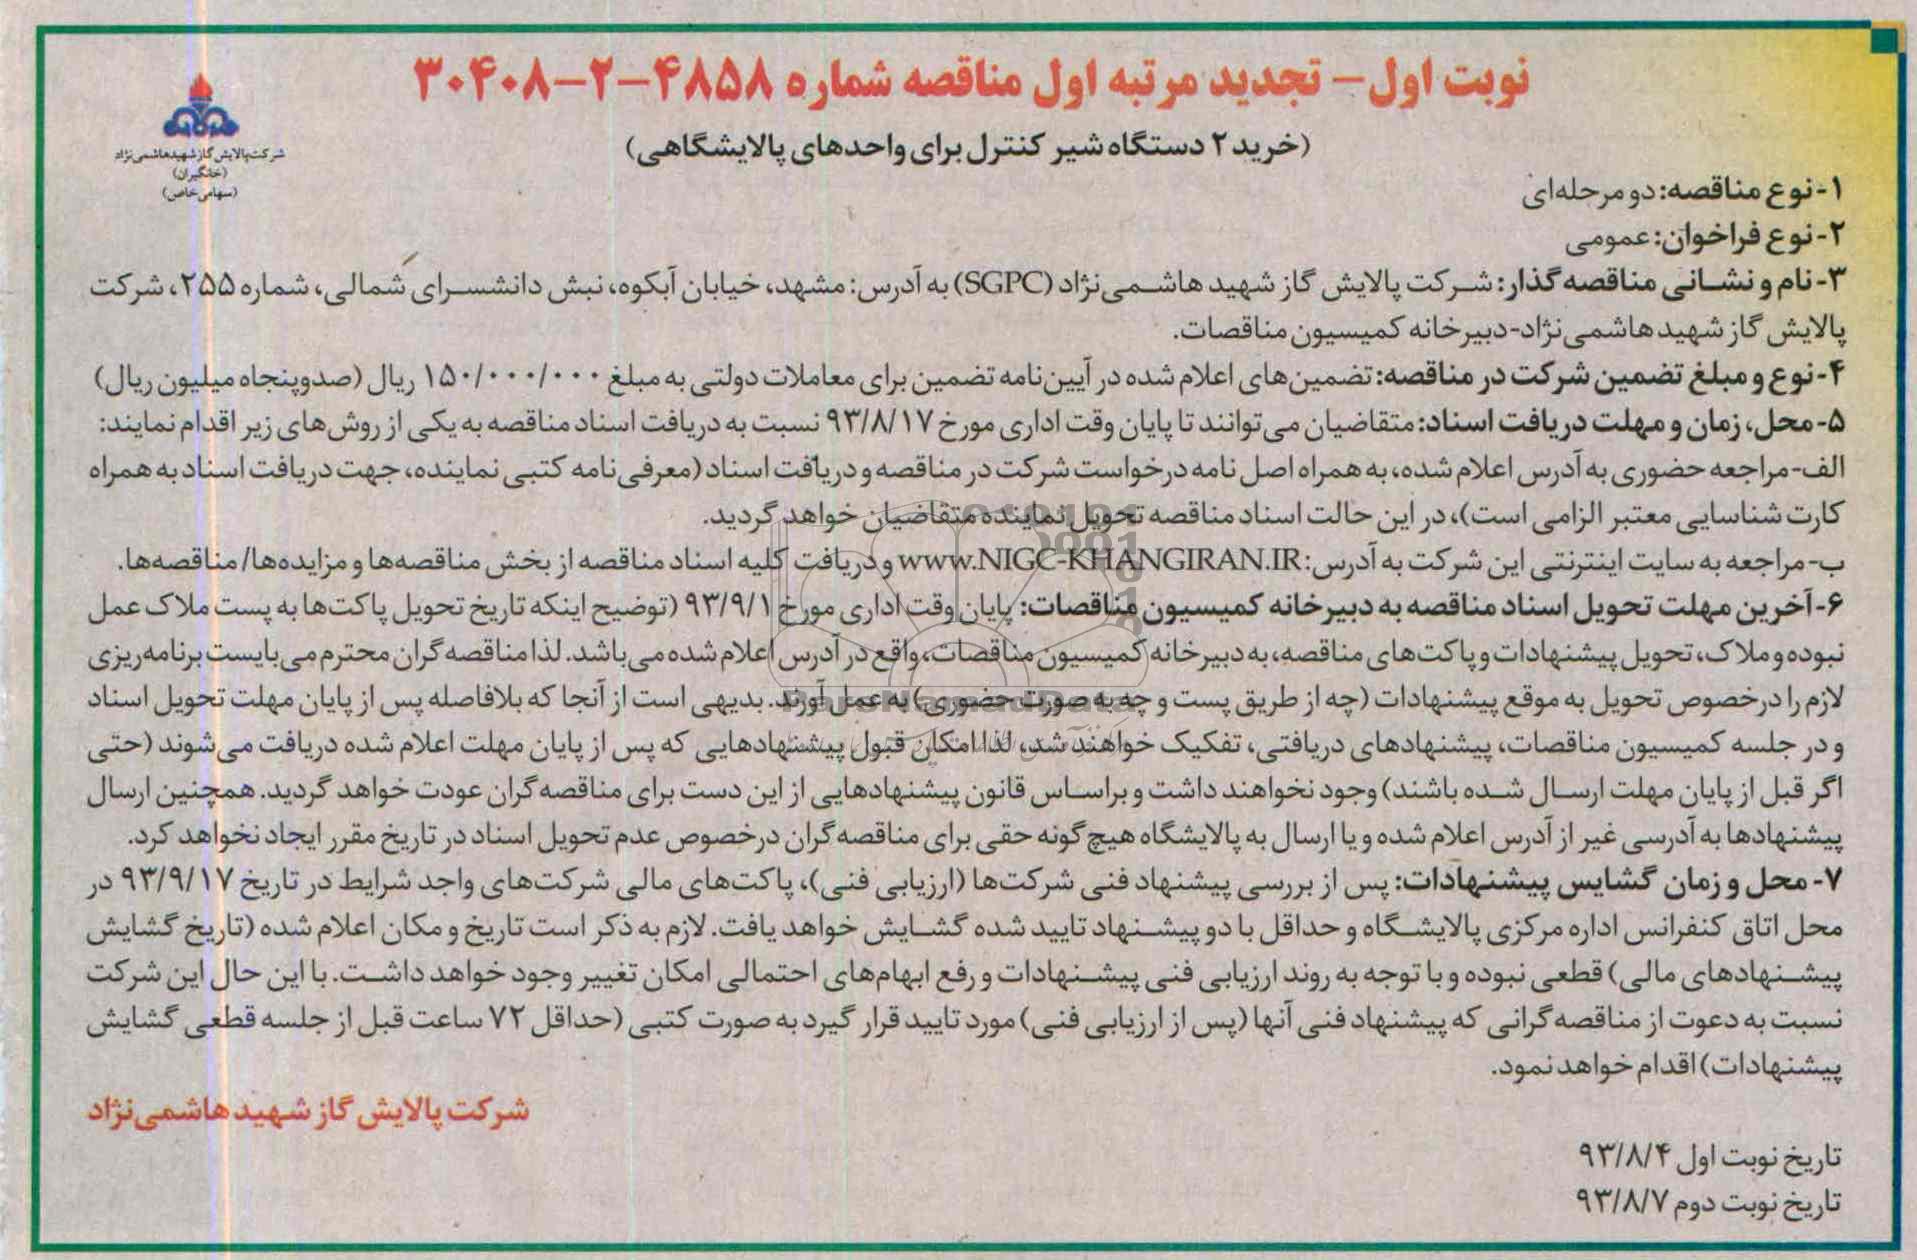 نوبت اول- تجدید مرتبه اول مناقصه شماره ۴۸۵۸-۲-۳۰۴۰۸
(خرید ۲ دستگاه شیر کنترل برای واحدهای پالایشگاهی)
شرکت پالایش گاز شهید هاشمی نژاد
(خانگیران)
(سهامی خاص)
۱- نوع مناقصه: دو مرحله‌ای
۲- نوع فراخوان: عمومی
۳- نام و نشانی مناقصه گذار: شرکت پالایش گاز شهید هاشمی‌نژاد (SGPC) به آدرس: مشهد، خیابان آبکوه، نبش دانشسرای شمالی، شماره ۲۵۵، شرکت
پالایش گاز شهید هاشمی‌نژاد-دبیرخانه کمیسیون مناقصات.
۴- نوع و مبلغ تضمین شرکت در مناقصه: تضمین‌های اعلام شده در آیین‌نامه تضمین برای معاملات دولتی به مبلغ ۱۵۰/۰۰۰/۰۰۰ ریال (صدوپنجاه میلیون ریال)
۵- محل، زمان و مهلت دریافت اسناد: متقاضیان می‌توانند تا پایان وقت اداری مورخ ۹۳/۸/۱۷ نسبت به دریافت اسناد مناقصه به یکی از روش‌های زیر اقدام نمایند:
الف- مراجعه حضوری به آدرس اعلام شده، به همراه اصل نامه درخواست شرکت در مناقصه و دریافت اسناد (معرفی‌نامه کتبی نماینده، جهت دریافت اسناد به همراه
کارت شناسایی معتبر الزامی است)، در این حالت اسناد مناقصه تحویل نماینده متقاضیان خواهد گردید.
ب- مراجعه به سایت اینترنتی این شرکت به آدرس: www.NIGC-KHANGIRAN.IR و دریافت کلیه اسناد مناقصه از بخش مناقصه‌ها و مزایده‌ها/ مناقصه‌ها.
۶- آخرین مهلت تحویل اسناد مناقصه به دبیرخانه کمیسیون مناقصات: پایان وقت اداری مورخ ۹۳/۹/۱ (توضیح اینکه تاریخ تحویل پاکت‌ها به پست ملاک عمل
نبوده و ملاک، تحویل پیشنهادات و پاکت‌های مناقصه، به دبیرخانه کمیسیون مناقصات، واقع در آدرس اعلام شده می‌باشد. لذا مناقصه گران محترم می‌بایست برنامه‌ریزی
لازم را درخصوص تحویل به موقع پیشنهادات (چه از طریق پست و چه به صورت حضوری) به عمل آورند. بدیهی است از آنجا که بلافاصله پس از پایان مهلت تحویل اسناد
و در جلسه کمیسیون مناقصات، پیشنهادهای دریافتی، تفکیک خواهند شد، لذا امکان قبول پیشنهادهایی که پس از پایان مهلت اعلام شده دریافت می‌شوند (حتی
اگر قبل از پایان مهلت ارسال شده باشند) وجود نخواهند داشت و براساس قانون پیشنهادهایی از این دست برای مناقصه گران عودت خواهد گردید. همچنین ارسال
پیشنهادها به آدرسی غیر از آدرس اعلام شده و یا ارسال به پالایشگاه هیچ گونه حقی برای مناقصه گران درخصوص عدم تحویل اسناد در تاریخ مقرر ایجاد نخواهد کرد.
۷- محل و زمان گشایس پیشنهادات: پس از بررسی پیشنهاد فنی شرکت‌ها (ارزیابی فنی)، پاکت‌های مالی شرکت‌های واجد شرایط در تاریخ ۹۳/۹/۱۷ در
محل اتاق کنفرانس اداره مرکزی پالایشگاه و حداقل با دو پیشنهاد تایید شده گشایش خواهد یافت. لازم به ذکر است تاریخ و مکان اعلام شده (تاریخ گشایش
پیشنهادهای مالی) قطعی نبوده و با توجه به روند ارزیابی فنی پیشنهادات و رفع ابهام‌های احتمالی امکان تغییر وجود خواهد داشت. با این حال این شرکت
نسبت به دعوت از مناقصه گرانی که پیشنهاد فنی آنها (پس از ارزیابی فنی) مورد تایید قرار گیرد به صورت کتبی (حداقل ۷۲ ساعت قبل از جلسه قطعی گشایش
پیشنهادات) اقدام خواهد نمود.
شرکت پالایش گاز شهید هاشمی‌نژاد
تاریخ نوبت اول ۹۳/۸/۴
تاریخ نوبت دوم ۹۳/۸/۷